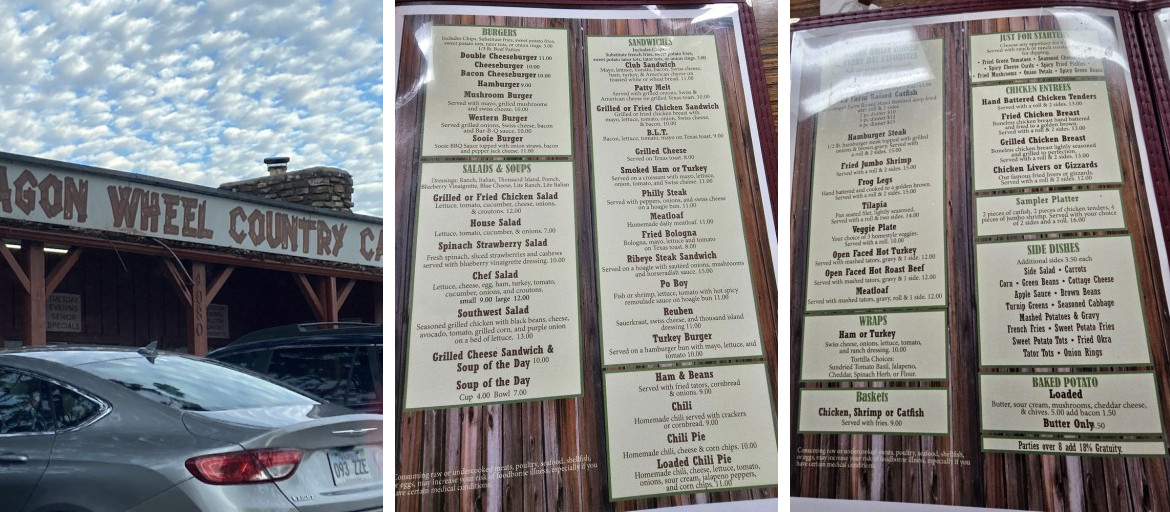 AGON WHEEL COUNTRY CA
TUESDAY
EVENING
SENIOR
SPECIALS
093 ZZE
BURGERS
Includes Chips. Substitute fries, sweet potato fries,
sweet potato tots, tater tots, or onion rings. 3.00
1/3 lb. Beef Patties
Double Cheeseburger 11.00
Cheeseburger 10.00
Bacon Cheeseburger 10.00
Hamburger 9.00
Mushroom Burger
Served with mayo, grilled mushrooms
and swiss cheese. 10.00
Western Burger
Served grilled onions, Swiss cheese, bacon
and Bar-B-Q sauce. 10.00
Sooie Burger
Sooie BBQ Sauce topped with onion straws, bacon
and pepper jack cheese. 11.00
SALADS & SOUPS
Dressings: Ranch, Italian, Thousand Island, French,
Blueberry Vinaigrette, Blue Cheese, Lite Ranch, Lite Italian
Grilled or Fried Chicken Salad
Lettuce, tomato, cucumber, cheese, onions,
& croutons. 12.00
House Salad
Lettuce, tomato, cucumber, & onions. 7.00
Spinach Strawberry Salad
Fresh spinach, sliced strawberries and cashews
served with blueberry vinaigrette dressing. 10.00
Chef Salad
Lettuce, cheese, egg, ham, turkey, tomato,
cucumber, onions, and croutons.
small 9.00 large 12.00
Southwest Salad
Seasoned grilled chicken with black beans, cheese,
avocado, tomato, grilled corn, and purple onion
on a bed of lettuce. 13.00
Grilled Cheese Sandwich &
Soup of the Day 10.00
Soup of the Day
Cup 4.00 Bowl 7.00
Consuming raw or undercooked meats, poultry, seafood, shellfish,
or eggs, may increase your risk of foodborne illness, especially if you
have certain medical conditions.
SANDWICHES
Includes Chips.
Substitute french fries, sweet potato fries,
sweet potato tots, tater tots, or onion rings. 3.00
Club Sandwich
Mayo, lettuce, tomato, bacon, Swiss cheese,
ham, turkey, & American cheese on
toasted white or wheat bread. 11.00
Patty Melt
Served with grilled onions, Swiss &
American cheese on grilled Texas toast. 10.00
Grilled or Fried Chicken Sandwich
Grilled or fried chicken breast with
mayo, lettuce, tomato, onion, Swiss cheese,
& bacon. 10.00
B.L.T.
Bacon, lettuce, tomato, mayo on Texas toast. 9.00
Grilled Cheese
Served on Texas toast. 8.00
Smoked Ham or Turkey
Served on a croissant with mayo, lettuce,
onion, tomato, and Swiss cheese. 11.00
Philly Steak
Served with peppers, onions, and swiss cheese
on a hoagie bun. 11.00
Meatloaf
Homemade daily meatloaf. 11.00
Fried Bologna
Bologna, mayo, lettuce and tomato
on Texas toast. 8.00
Ribeye Steak Sandwich
Served on a hoagie with sauteed onions, mushrooms
and horseradish sauce. 15.00
Po Boy
Fish or shrimp, lettuce, tomato with hot spicy
remoulade sauce on hoagie bun 11.00
Reuben
Sauerkraut, swiss cheese, and thousand island
dressing 11.00
Turkey Burger
Served on a hamburger bun with mayo, lettuce, and
tomato 10.00
Ham & Beans
Served with fried tators, cornbread
& onions. 9.00
Chili
Homemade chili served with crackers
or cornbread. 9.00
Chili Pie
Homemade chili, cheese & corn chips. 10.00
Loaded Chili Pie
Homemade chili, cheese, lettuce, tomato,
onions, sour cream, jalapeno peppers,
and corn chips. 11.00
Farm Raised Catfish
Hamburger Steak
1/2 lb. hamburger steak topped with grilled
onions & brown gravy. Served with
a roll & 2 sides. 13.00
Fried Jumbo Shrimp
Served with a roll & 2 sides. 15.00
Frog Legs
Hand battered and cooked to a golden brown.
Served with a roll & 2 sides. 15.00
Tilapia
Pan seated filet, lightly seasoned.
Served with a roll & two sides. 14.00
Veggie Plate
Your choice of 3 homestyle veggies.
Served with a roll. 10.00
Open Faced Hot Turkey
Served with mashed tators, gravy, & 1 side. 12.00
Open Faced Hot Roast Beef
Served with mashed tators, gravy & 1 side. 12.00
Meatloaf
Served with mashed tators, gravy, roll & 1 side. 12.00
WRAPS
Ham or Turkey
Swiss cheese, onions, lettuce, tomato,
and ranch dressing. 10.00
Tortilla Choices:
Sundried Tomato Basil, Jalapeno,
Cheddar, Spinach Herb, or Flour.
Baskets
Chicken, Shrimp or Catfish
Served with fries. 9.00
Consuming raw or undercooked meats, poultry, seafood, shellfish,
or eggs, may increase your risk of foodborne illness, especially if you
have certain medical conditions.
JUST FOR STARTE
Choose any appetizer for
Served with ranch or
for dipping.
• Fried Green Tomatoes • Seasoned
• Spicy Cheese Curds • Spicy Fried Pickles •
Fried Mushrooms • Onion Petals • Spicy Green Beans
CHICKEN ENTREES
Hand Battered Chicken Tenders
Served with a roll & 2 sides. 13.00
Fried Chicken Breast
Boneless chicken breast hand battered
and fried to a golden brown.
Served with a roll & 2 sides. 13.00
Grilled Chicken Breast
Boneless chicken breast lightly seasoned
and grilled to perfection.
Served with a roll & 2 sides. 13.00
Chicken Livers or Gizzards
Our famous fried livers or gizzards.
Served with a roll & 2 sides. 12.00
Sampler Platter
2 pieces of catfish, 2 pieces of chicken tenders, 4
pieces of jumbo shrimp. Served with your choice
of 2 sides and a roll. 16.00
SIDE DISHES
Additional sides 3.50 each
Side Salad • Carrots
Corn • Green Beans • Cottage Cheese
Apple Sauce • Brown Beans
Turnip Greens • Seasoned Cabbage
Mashed Potatoes & Gravy
French Fries • Sweet Potato Fries
Sweet Potato Tots • Fried Okra
Tator Tots • Onion Rings
BAKED POTATO
Loaded
Butter, sour cream, mushrooms, cheddar cheese,
& chives. 5.00 add bacon 1.50
Butter Only .50
Parties over 8 add 18% Gratuity.